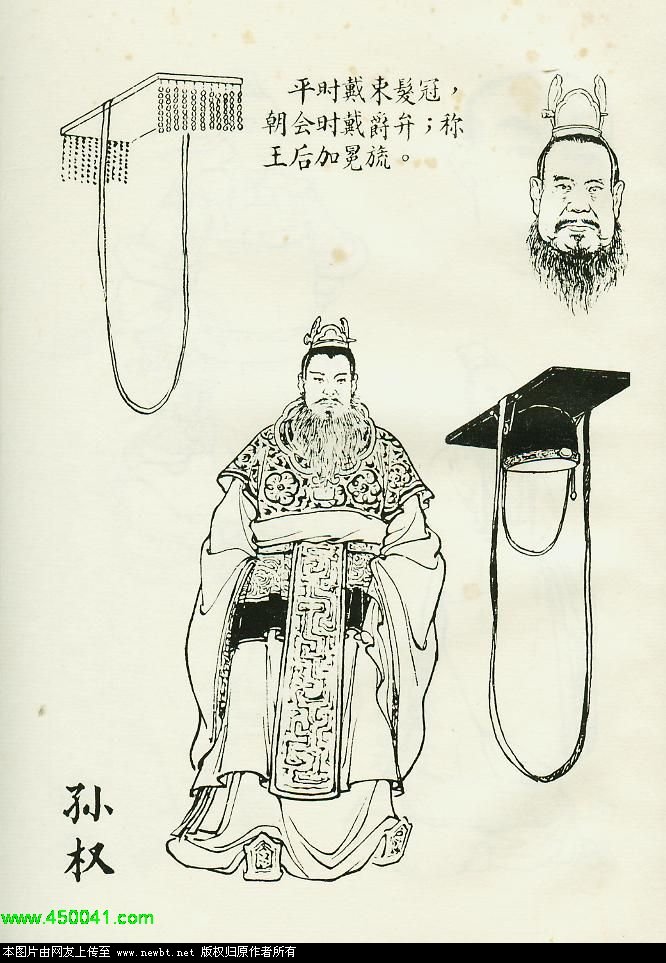 平时戴束髮冠，
朝会时戴爵弁；称
王后加冕旒。
孙
权
www.450041.com
本图片由网友上传至 www.newbt.net 版权归原作者所有